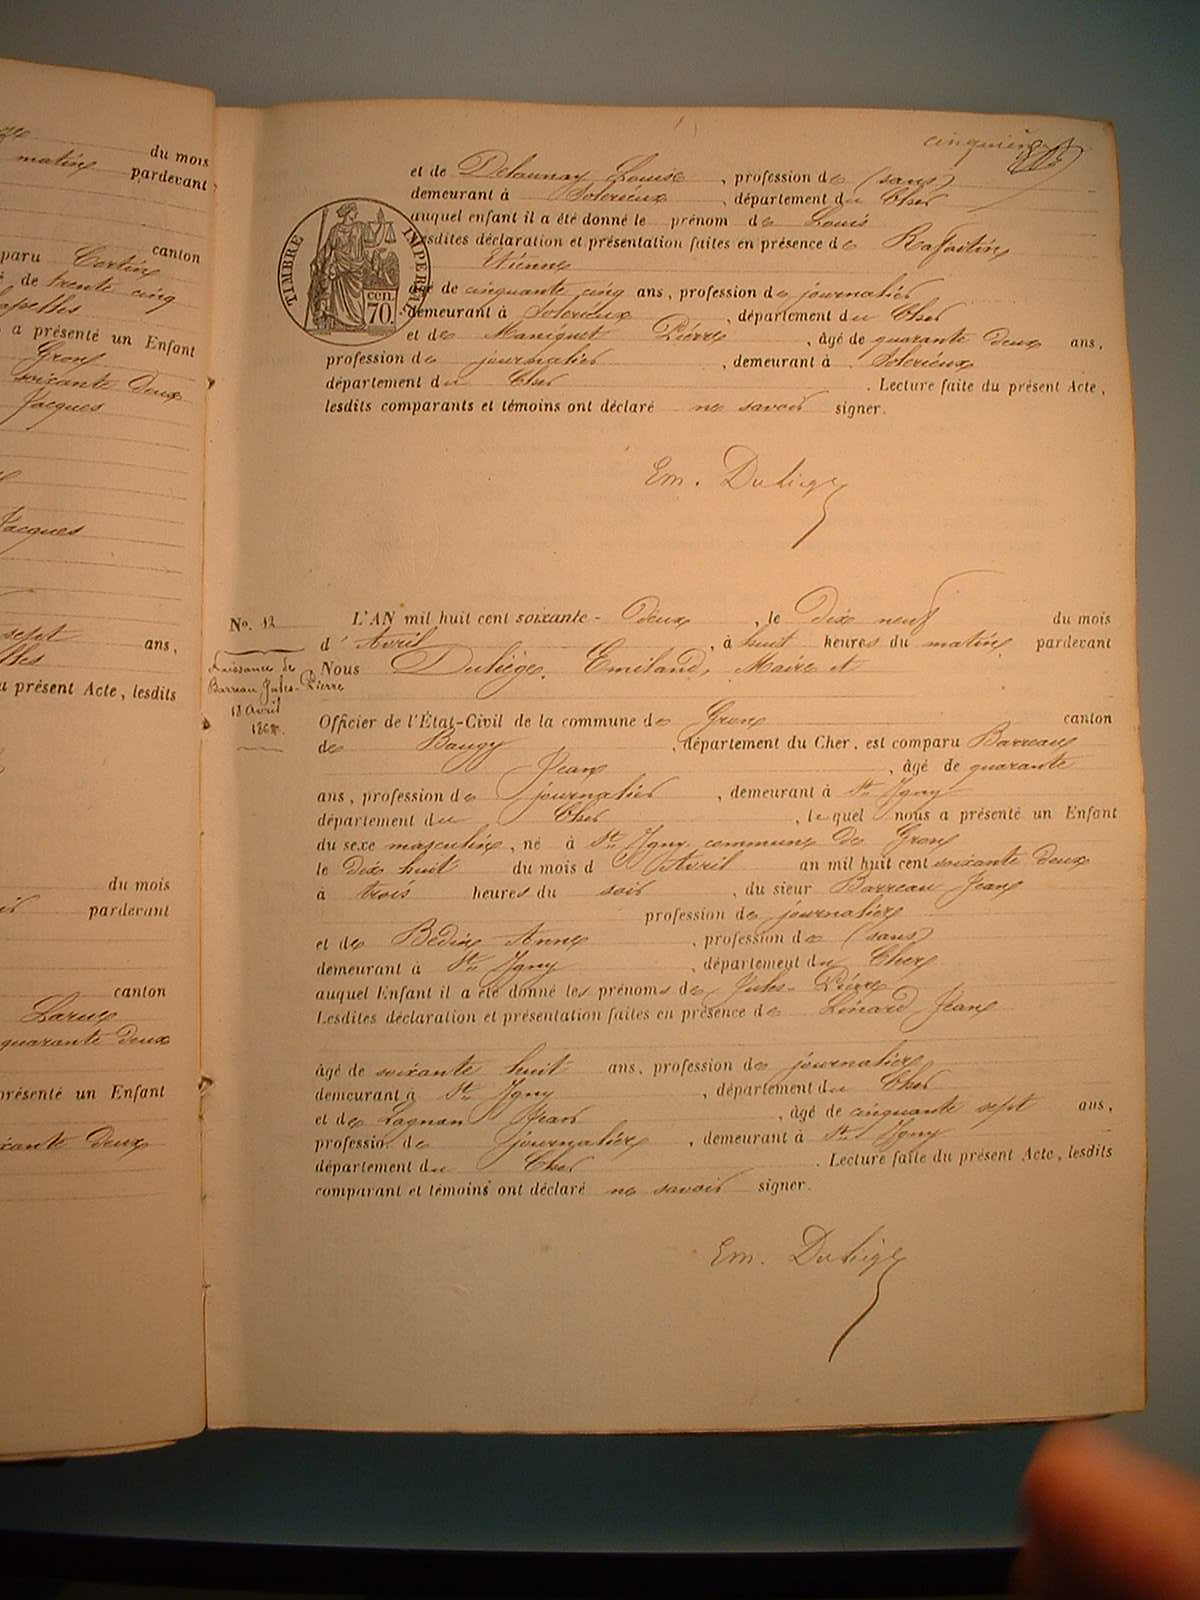 cinquième
et de Delaunay Louise, profession de (sans)
demeurant à Solerieux, département du Cher
auquel enfant il a été donné le prénom de Louis
Lesdites déclaration et présentation faites en présence de Raffaitin
Etienne
âgé de cinquante cinq ans, profession de journalier
demeurant à Solerieux, département du Cher
et de Maniguet Pierre, âgé de quarante deux ans,
profession de journalier, demeurant à Solerieux
département du Cher. Lecture faite du présent Acte,
lesdits comparants et témoins ont déclaré ne savoir signer.
TIMBRE IMPERIAL
70 cen.
Em. Duliège
No. 12
Naissance de
Barreau Jules-Pierre
18 avril
1862.
L'AN mil huit cent soixante-Deux, le Dix neuf du mois
d'Avril, à huit heures du matin pardevant
Nous Duliège, Emiland, Maire et
Officier de l'État-Civil de la commune de Gron canton
de Baugy, département du Cher, est comparu Barreau
Jean, âgé de quarante
ans, profession de journalier, demeurant à St Igny
département du Cher, lequel nous a présenté un Enfant
du sexe masculin, né à St Igny commune de Gron
le dix huit du mois d'Avril an mil huit cent soixante deux
à trois heures du soir, du sieur Barreau Jean
profession de journalier
et de Bedin Anne, profession de (sans)
demeurant à St Igny, département du Cher
auquel Enfant il a été donné les prénoms de Jules-Pierre
Lesdites déclaration et présentation faites en présence de Linard Jean
âgé de soixante huit ans, profession de journalier
demeurant à St Igny, département du Cher
et de Lagnan Jean, âgé de cinquante sept ans,
profession de journalier, demeurant à St Igny
département du Cher. Lecture faite du présent Acte, lesdits
comparant et témoins ont déclaré ne savoir signer.
Em. Duliège
du mois
matin pardevant
canton
paru Cortin
de trente cinq
a présenté un Enfant
Gron
soixante deux
Jacques
Jacques
sept ans,
u présent Acte, lesdits
du mois
pardevant
canton
Larue
quarante deux
présenté un Enfant
soixante deux